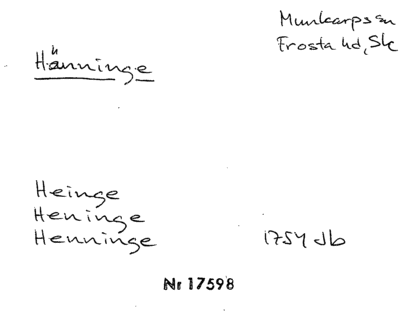 Munkarps sn
Frosta hd, Sk
Hänninge
Heinge
Heninge
Henninge 1754 db
Nr 17598